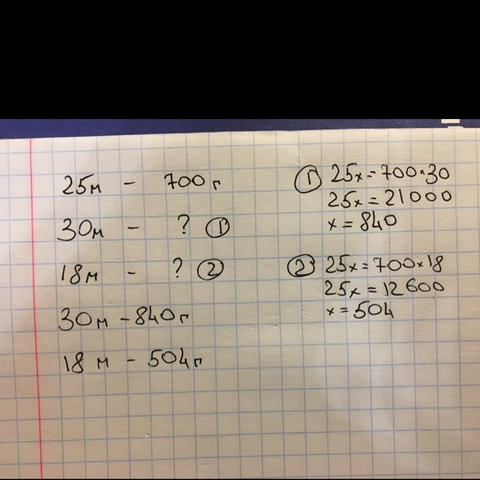 25м - 700 г
30м - ? ①
18м - ? ②
30м - 840г
18 м - 504г
① 25x = 700·30
25x = 21000
x = 840
② 25x = 700×18
25x = 12600
x = 504